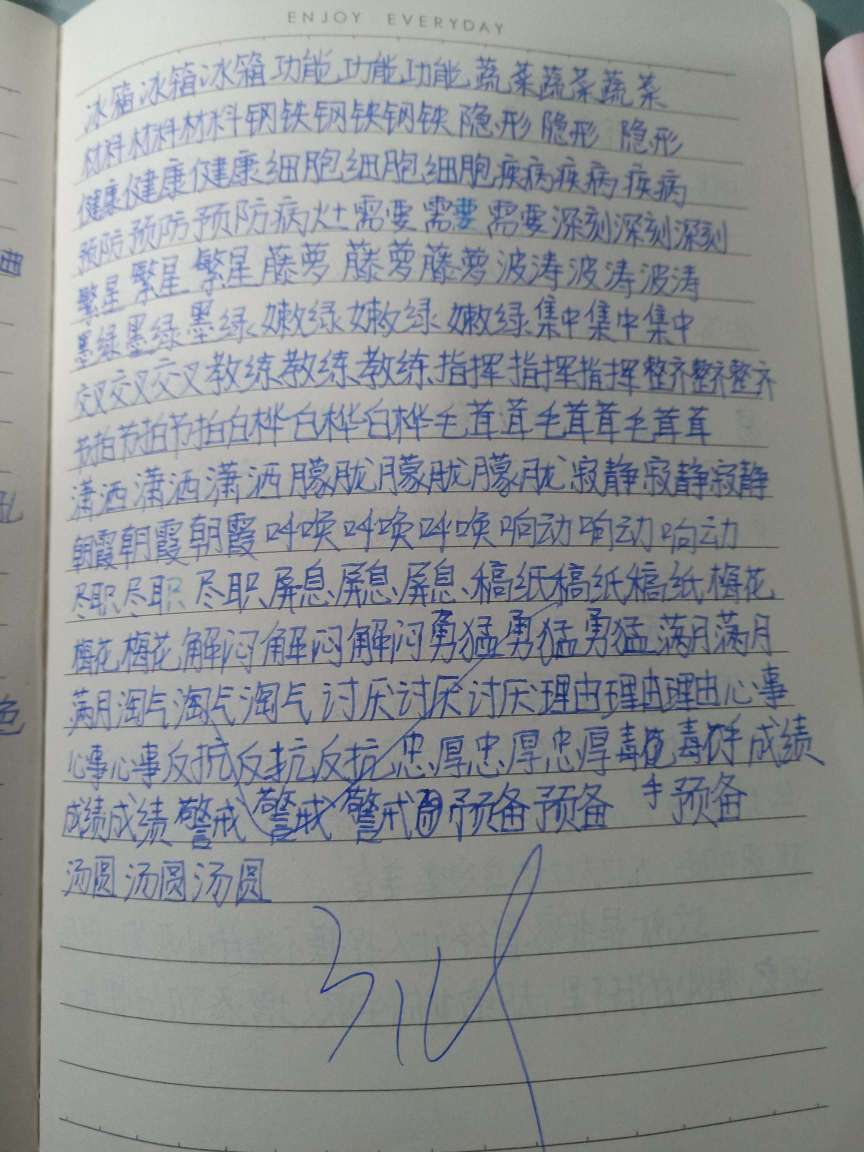 ENJOY EVERYDAY
冰箱冰箱冰箱功能功能功能蔬菜蔬菜蔬菜
材料材料材料钢铁钢铁钢铁隐形隐形 隐形
健康健康健康细胞细胞细胞疾病疾病疾病
预防预防预防病灶需要需要需要深刻深刻深刻
繁星繁星繁星藤萝藤萝藤萝波涛波涛波涛
墨绿墨绿墨绿嫩绿嫩绿嫩绿集中集中集中
交叉交叉交叉教练教练教练指挥指挥指挥整齐整齐整齐
节拍节拍节拍白桦白桦白桦毛茸茸毛茸茸毛茸茸
潇洒潇洒潇洒朦胧朦胧朦胧寂静寂静寂静
朝霞朝霞朝霞叫唤叫唤叫唤响动响动响动
尽职尽职尽职屏息屏息屏息稿纸稿纸稿纸梅花
梅花梅花解闷解闷解闷勇猛勇猛勇猛满月满月
满月淘气淘气淘气讨厌讨厌讨厌理由理由理由心事
心事心事反抗反抗反抗忠厚忠厚忠厚毒毒手成绩
成绩成绩警戒警戒警戒预备预备 手预备
汤圆汤圆汤圆
曲
乱
色